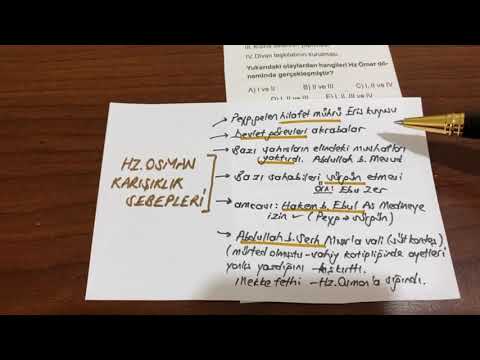 IV. Divan teşkilatının kurulması.
Yukarıdaki olaylardan hangileri Hz Ömer dö-
neminde gerçekleşmiştir?
A) I ve II B) II ve III C) I, II ve IV
D) I, III ve IV E) I, II, III ve IV
HZ. OSMAN
KARIŞIKLIK
SEBEPLERİ
→ Peyg. gelen hilafet mührü Eris kuyusu
→ Devlet görevleri akrabalar
→ Bazı şahısların elindeki mushafları
yaktırdı. Abdullah b. Mesud
→ Bazı sahabileri sürgün etmesi
örn: Ebu Zer
→ amcası: Hakem b. Ebul As Medineye
izin ✓ (Peyg → sürgün)
→ Abdullah b. Serh Mısır'a vali (süt kardeş)
(mürted olmuştu - vahiy katipliğinde ayetleri
yanlış yazdığını - kışkırttı.
Mekke fethi - Hz. Osman'a sığındı.